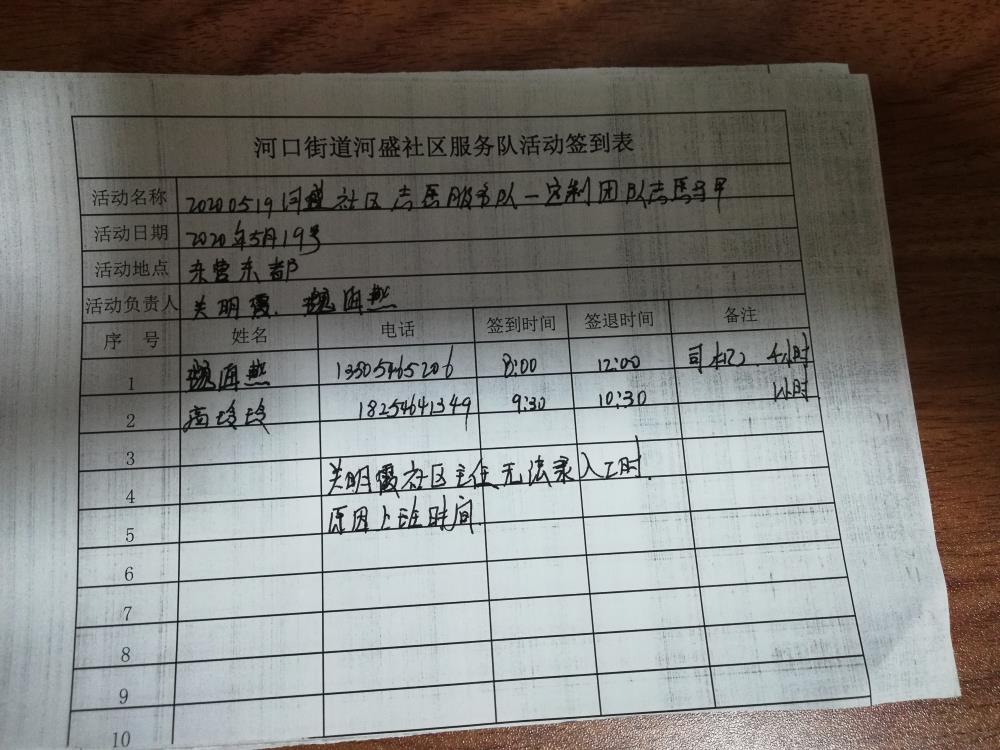 河口街道河盛社区服务队活动签到表
活动名称 20200519河盛社区志愿服务队一定制团队志愿马甲
活动日期 2020年5月19号
活动地点 东营东都
活动负责人 关明霞、魏海燕
序号 姓名 电话 签到时间 签退时间 备注
1 魏海燕 13505465206 8:00 12:00 司机 4小时
2 高玲玲 18254641349 9:30 10:30 1小时
3
4 关明霞社区主任无法录入工时.
5 原因上班时间.
6
7
8
9
10